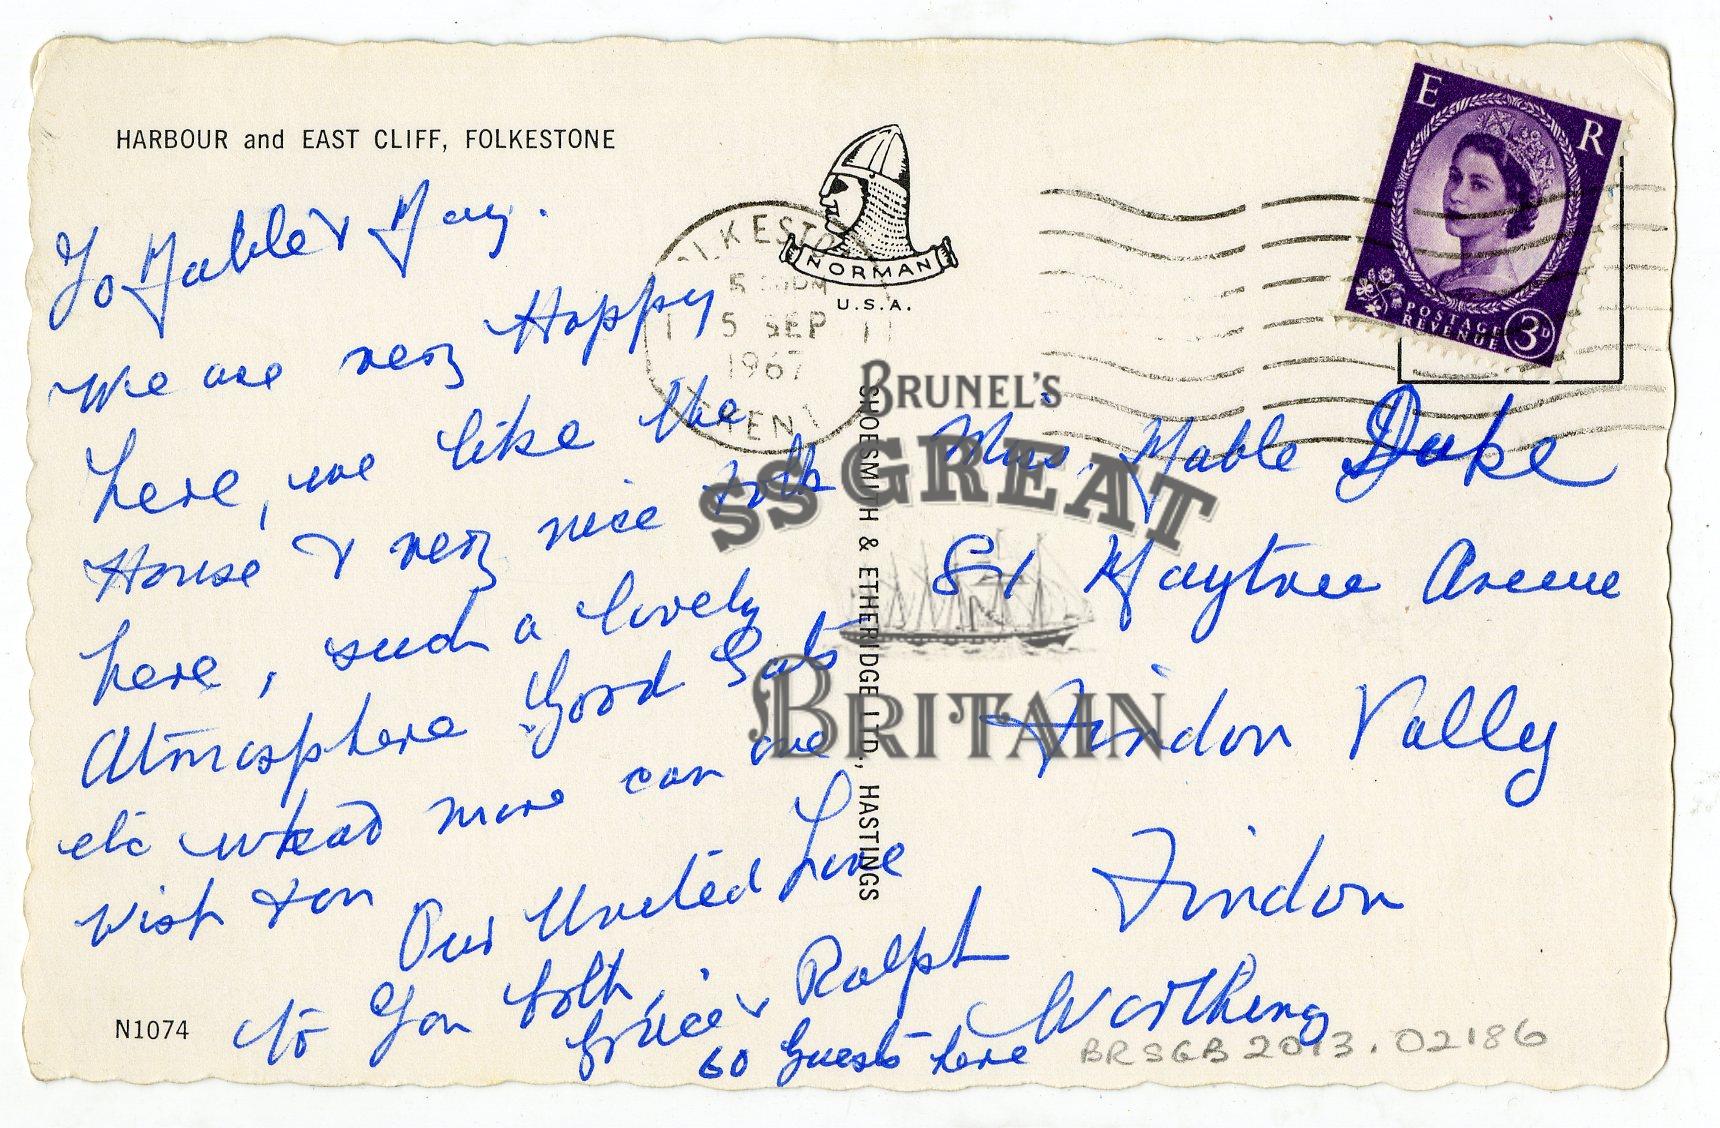 HARBOUR and EAST CLIFF, FOLKESTONE
To Mable & May.
We are very Happy
here, we like the
House & very nice folk
here, such a lovely
Atmosphere Good Eats
etc what more can one
wish for
Our United Love
to You both,
Grace & Ralph
60 Guests here
N1074
NORMAN
U.S.A.
FOLKESTONE
5 SEP
1967
KENT
SHOESMITH & ETHERIDGE LTD., HASTINGS
E R
POSTAGE
REVENUE
3D
Mable Duke
81 Maytree Avenue
Findon Vally
Findon
Worthing
BRSGB 2013.02186
BRUNEL'S
SS GREAT
BRITAIN